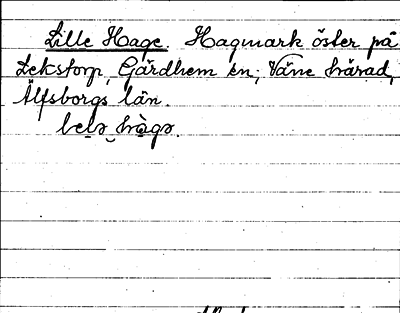 Lille Hage. Hagmark öster på
Lekstorp, Gärdhem sn, Väne härad,
Älfsborgs län.